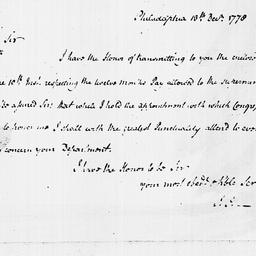 Philadelphia 18th Decr. 1778
Sir
I have the Honor of transmitting to you the enclos
10th Inst. respecting the twelve months Pay allowed to the supernum
assured Sir that while I hold the appointment with which Congre
to honor me I shall with the greatest Punctuality attend to eve
concern your Department.
I have the Honor to be Sir
your most obedt. & hble Ser
J. J.